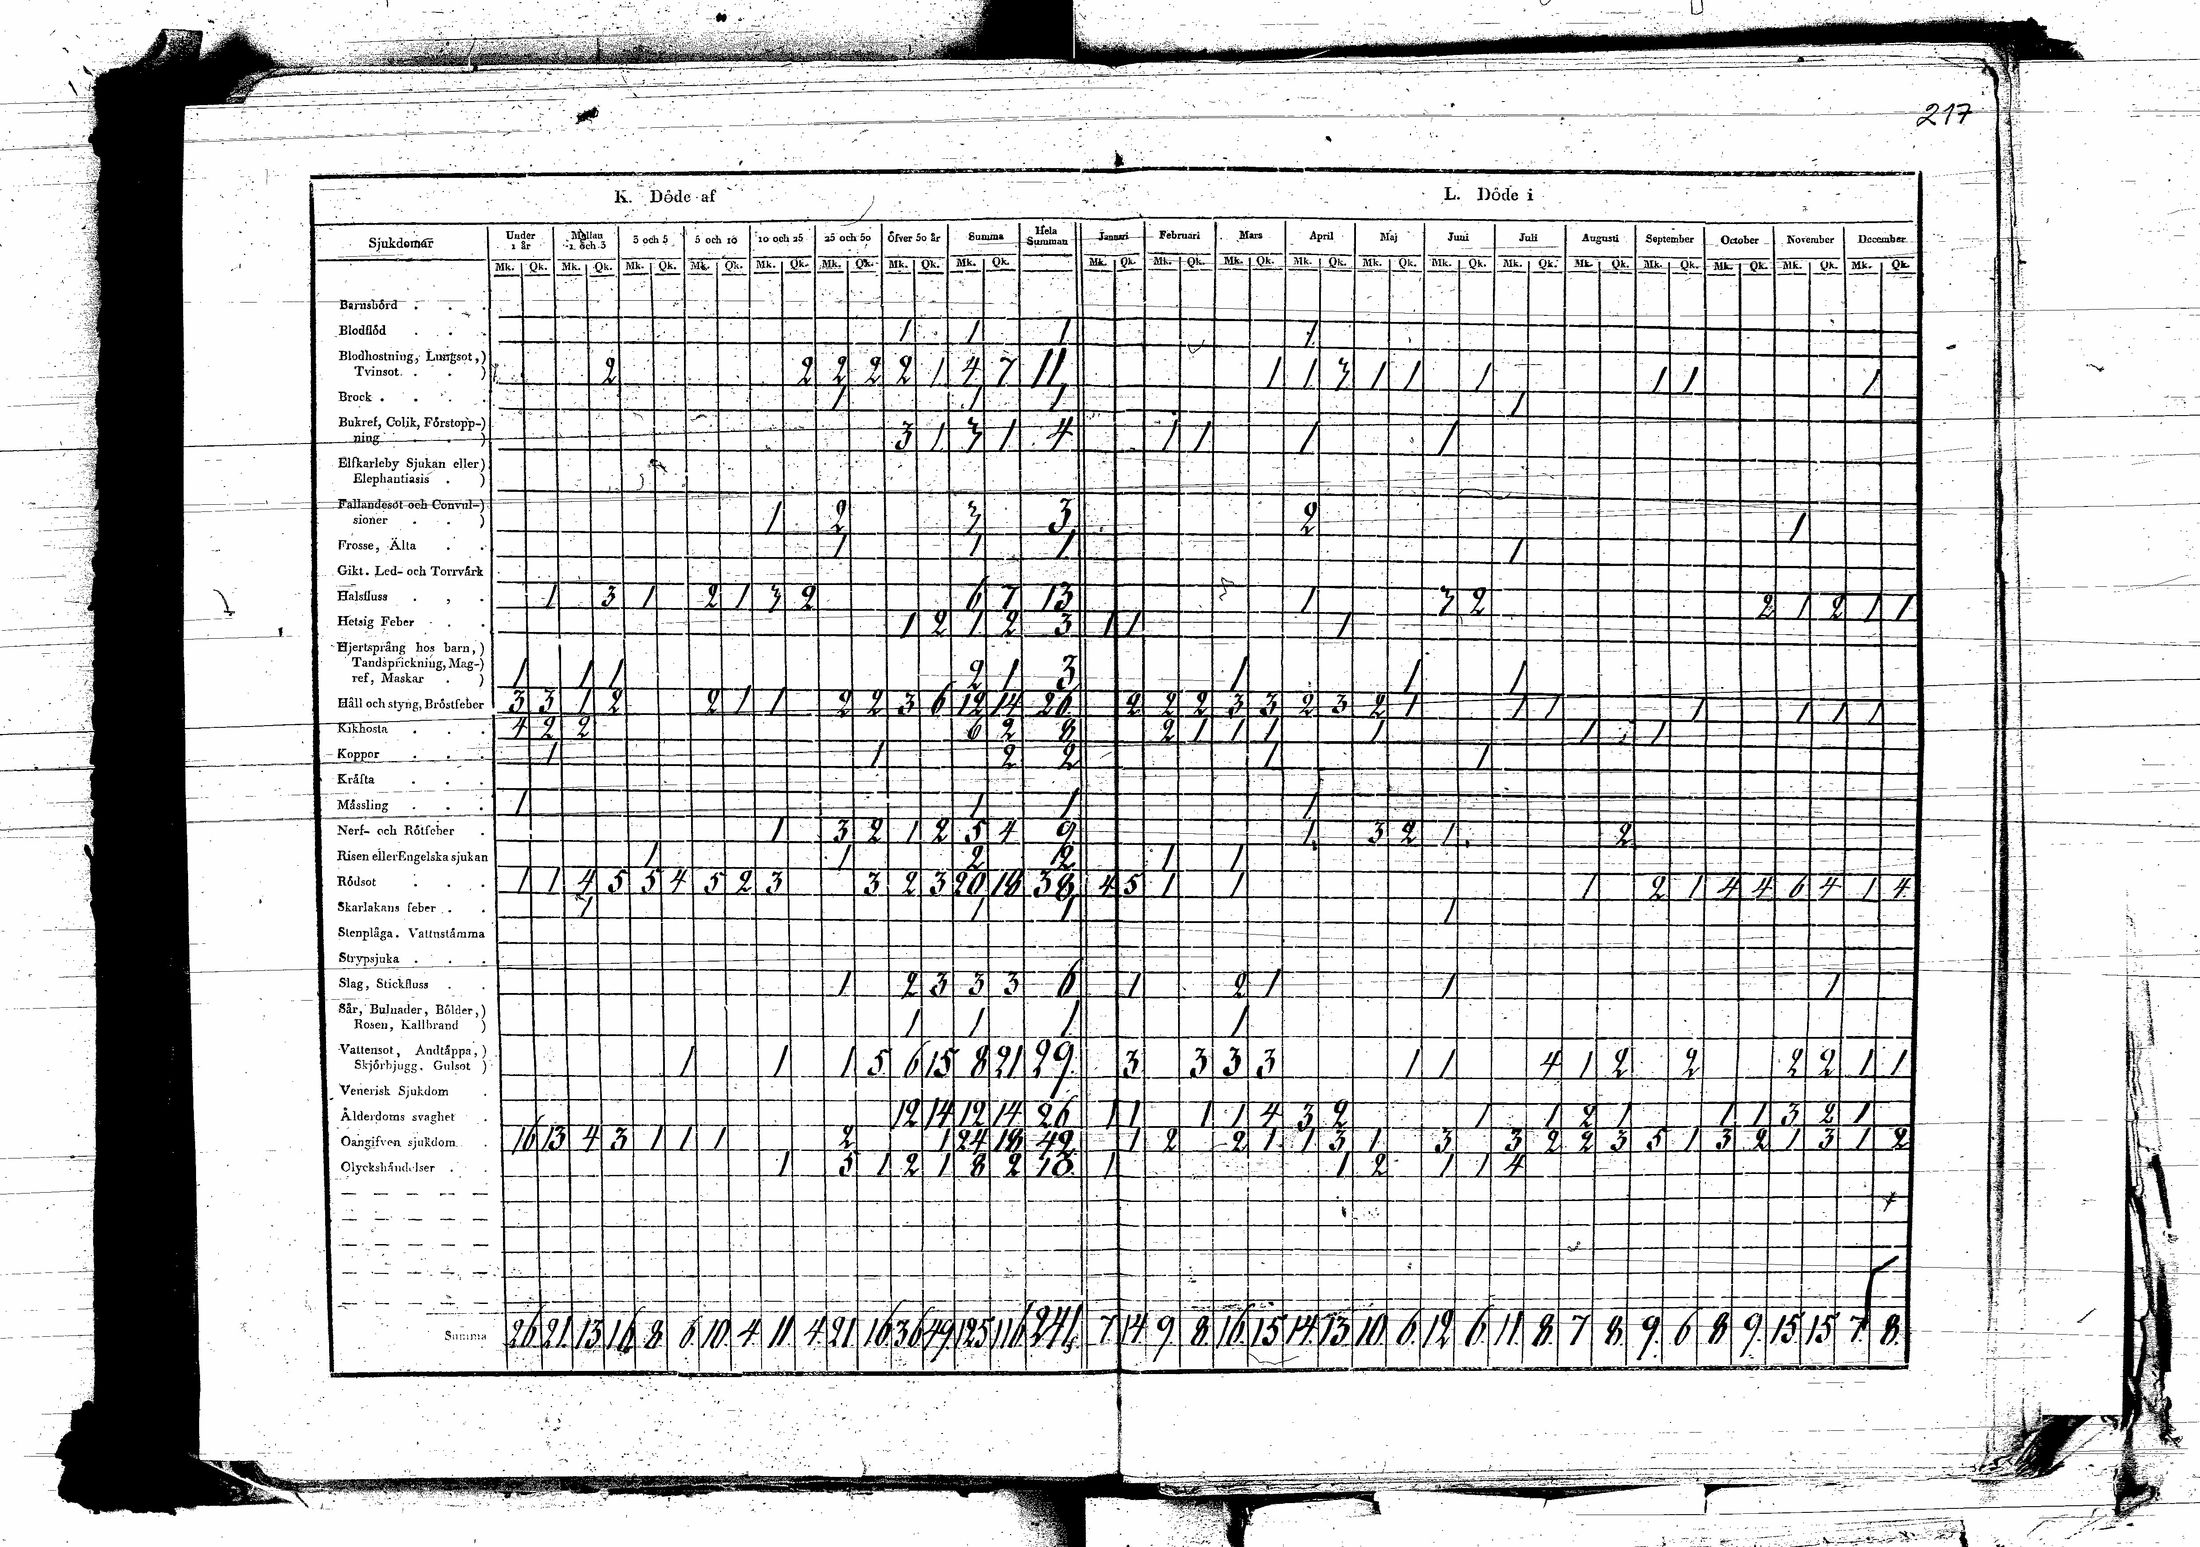 217
K. Döde af L. Döde i
Sjukdomar Under 1 år Mellan 1 och 3 3 och 5 5 och 10 10 och 25 25 och 50 Öfver 50 år Summa Hela Summan Januari Februari Mars April Maj Juni Juli Augusti September October November December
Mk. Qk. Mk. Qk. Mk. Qk. Mk. Qk. Mk. Qk. Mk. Qk. Mk. Qk. Mk. Qk. Mk. Qk. Mk. Qk. Mk. Qk. Mk. Qk. Mk. Qk. Mk. Qk. Mk. Qk. Mk. Qk. Mk. Qk. Mk. Qk. Mk. Qk. Mk. Qk.
Barnsbörd . . .
Blodflöd . . . 1 1 1 1
Blodhostning, Lungsot,)
Tvinsot. . . ) 2 2 2 2 2 1 4 7 11 1 1 3 1 1 1 1 1 1
Brock . . . . 1 1 1 1
Bukref, Colik, Förstopp-)
ning . . . ) 3 1 3 1 4 1 1 1 1
Elfkarleby Sjukan eller)
Elephantiasis . )
Fallandesot och Convul-)
sioner . . ) 1 2 3 3 2 1
Frosse, Älta . . 1 1 1 1
Gikt. Led- och Torrvärk
Halsfluss . , . 1 3 1 2 1 3 2 6 7 13 1 3 2 2 1 2 1 1
Hetsig Feber . . 1 2 1 2 3 1 1 1
Hjertsprång hos barn,)
Tandsprickning, Mag-)
ref, Maskar . ) 1 1 1 2 1 3 1 1 1
Håll och styng, Bröstfeber 3 3 1 2 2 1 1 2 2 3 6 12 14 26 2 2 2 3 3 2 3 2 1 1 1 1 1 1 1
Kikhosta . . . 4 2 2 6 2 8 2 1 1 1 1 1 1
Koppor . . . 1 1 2 2 1 1
Kräfta . . .
Mässling . . . 1 1 1 1
Nerf- och Rötfeber . 1 3 2 1 2 5 4 9 1 3 2 1 2
Risen eller Engelska sjukan 1 1 2 2 1 1
Rödsot . . . 1 1 4 5 5 4 5 2 3 3 2 3 20 18 38 4 5 1 1 1 2 1 4 4 6 4 1 4
Skarlakans feber . . 1 1 1 1
Stenplåga. Vattnstämma
Strypsjuka . . .
Slag, Stickfluss . . 1 2 3 3 3 6 1 2 1 1 1
Sår, Bulnader, Bölder,)
Rosen, Kallbrand ) 1 1 1 1
Vattensot, Andtäppa,)
Skjörbjugg. Gulsot ) 1 1 1 5 6 15 8 21 29 3 3 3 3 1 1 4 1 2 2 2 2 1 1
Venerisk Sjukdom .
Ålderdoms svaghet . 12 14 12 14 26 1 1 1 1 4 3 2 1 1 2 1 1 1 3 2 1
Oangifven sjukdom . 16 13 4 3 1 1 1 2 1 24 18 42 1 2 2 1 1 3 1 3 3 2 2 3 5 1 3 2 1 3 1 2
Olyckshändelser . . 1 5 1 2 1 8 2 10 1 1 2 1 1 4
Summa 26 21 13 16 8 6 10 4 11 4 21 16 36 49 125 116 241 7 14 9 8 16 15 14 13 10 6 12 6 11 8 7 8 9 6 8 9 15 15 7 8